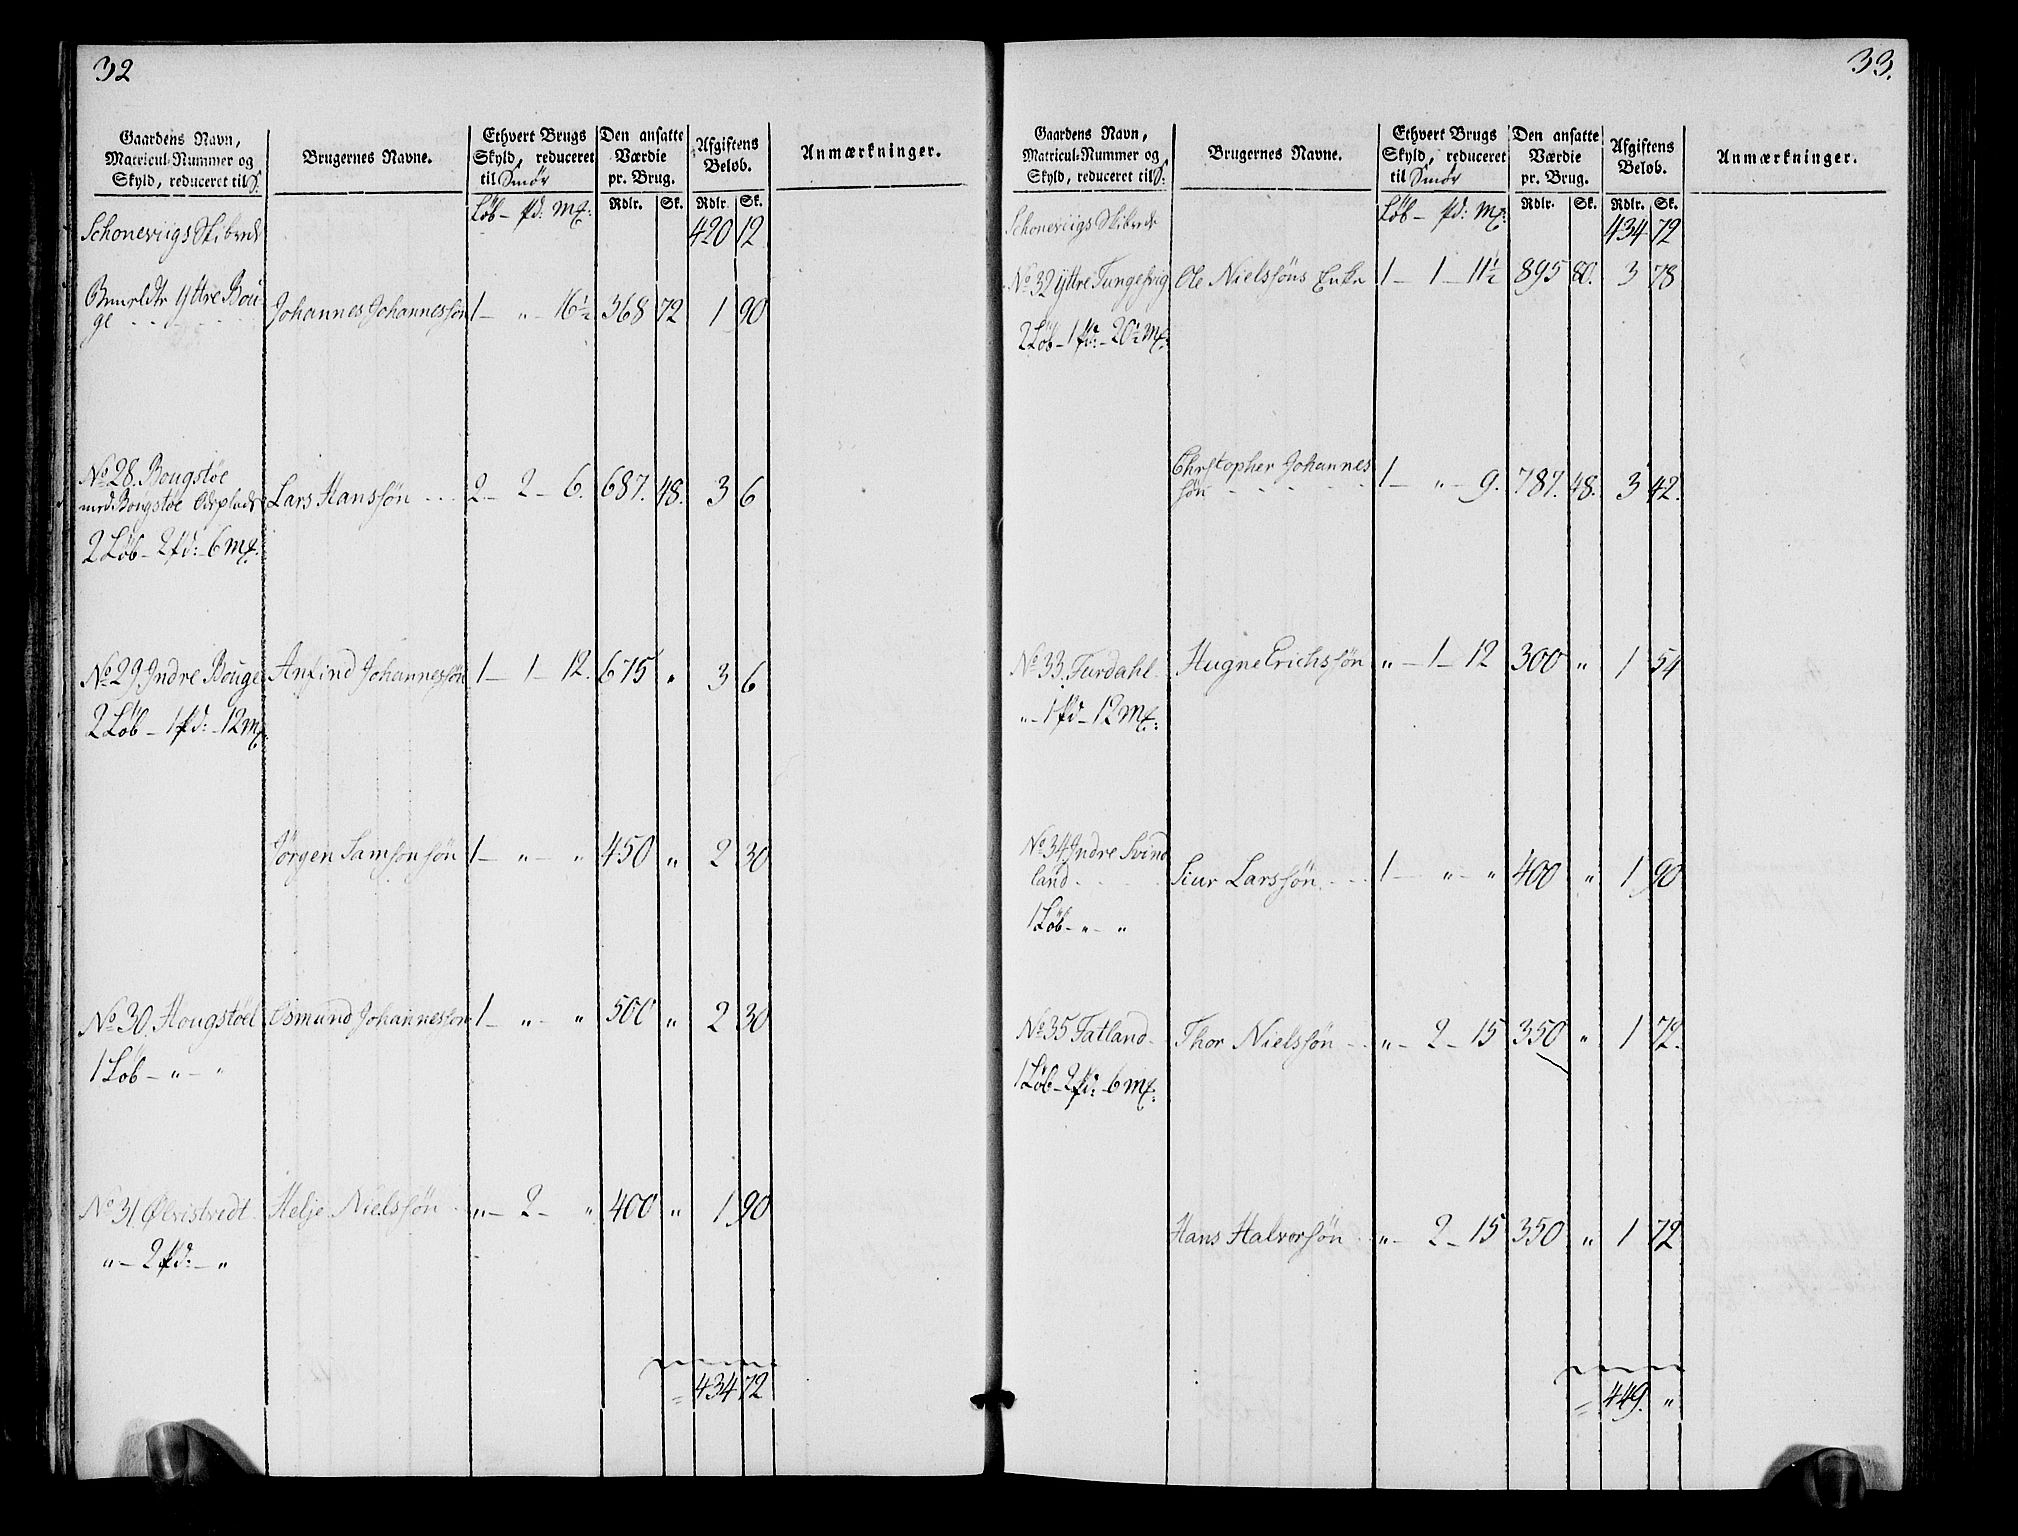 32
Gaardens Navn, Matricul-Nummer og Skyld, reduceret til S:
Brugernes Navne.
Ethvert Brugs Skyld, reduceret til Smör
Den ansatte Værdie pr. Brug.
Afgiftens Beløb.
Anmærkninger.
Löb - pd: mk: Rdlr. Sk. Rdlr. Sk.
Schoneviigs Skibrede 420 12
Yttre Bou
ge - - - Johannes Johannessøn 1 - " - 16½ 368 72 1 90
No 28. Bougstøe
med Bougstøe Lars Hanssøn - - - 2 - 2 - 6. 687. 48. 3 6
2 Löb - 2 pd: - 6 mk:
No 29 Indre Bouge Anfind Johannessøn 1 - 1 - 12. 675 " 3 6
2 Löb - 1 pd: - 12 mk:
Jørgen Samsonsøn 1 - " - " 450 " 2 30
No 30. Hougstøel Osmund Johannessøn 1 - " - " 500 " 2 30
1 Löb - " - "
No 31 Ølvistvedt Helje Nielssøn " - 2 - " 400 " 1 90
" - 2 pd: - "
= 434 72
33.
Gaardens Navn, Matricul-Nummer og Skyld, reduceret til S:
Brugernes Navne.
Ethvert Brugs Skyld, reduceret til Smör
Den ansatte Værdie pr. Brug.
Afgiftens Beløb.
Anmærkninger.
Löb - pd: mk: Rdlr. Sk. Rdlr. Sk.
Schoneviigs Skibrede 434 72
No 32 Yttre Tungesvig Ole Nielssøns Enke 1 - 1 - 11½ 895 80. 3 78
2 Löb - 1 pd: - 20½ mk:
Christopher Johannes
søn - - - - - 1 - " - 9. 787. 48. 3 42.
No 33. Furdahl - Hugne Erichssøn " - 1 - 12 300 " 1 54
" - 1 pd - 12 mk:
No 34 Indre Svind
land - - - Siur Larssøn - - - 1 - " - " 400 " 1 90
1 Löb - " - "
No 35 Fatland - Thor Nielssøn - - " - 2 - 15 350 " 1 72.
1 Löb - 2 pd: - 6 mk:
Hans Halvorsøn " - 2 - 15 350 " 1 72
= 449. "